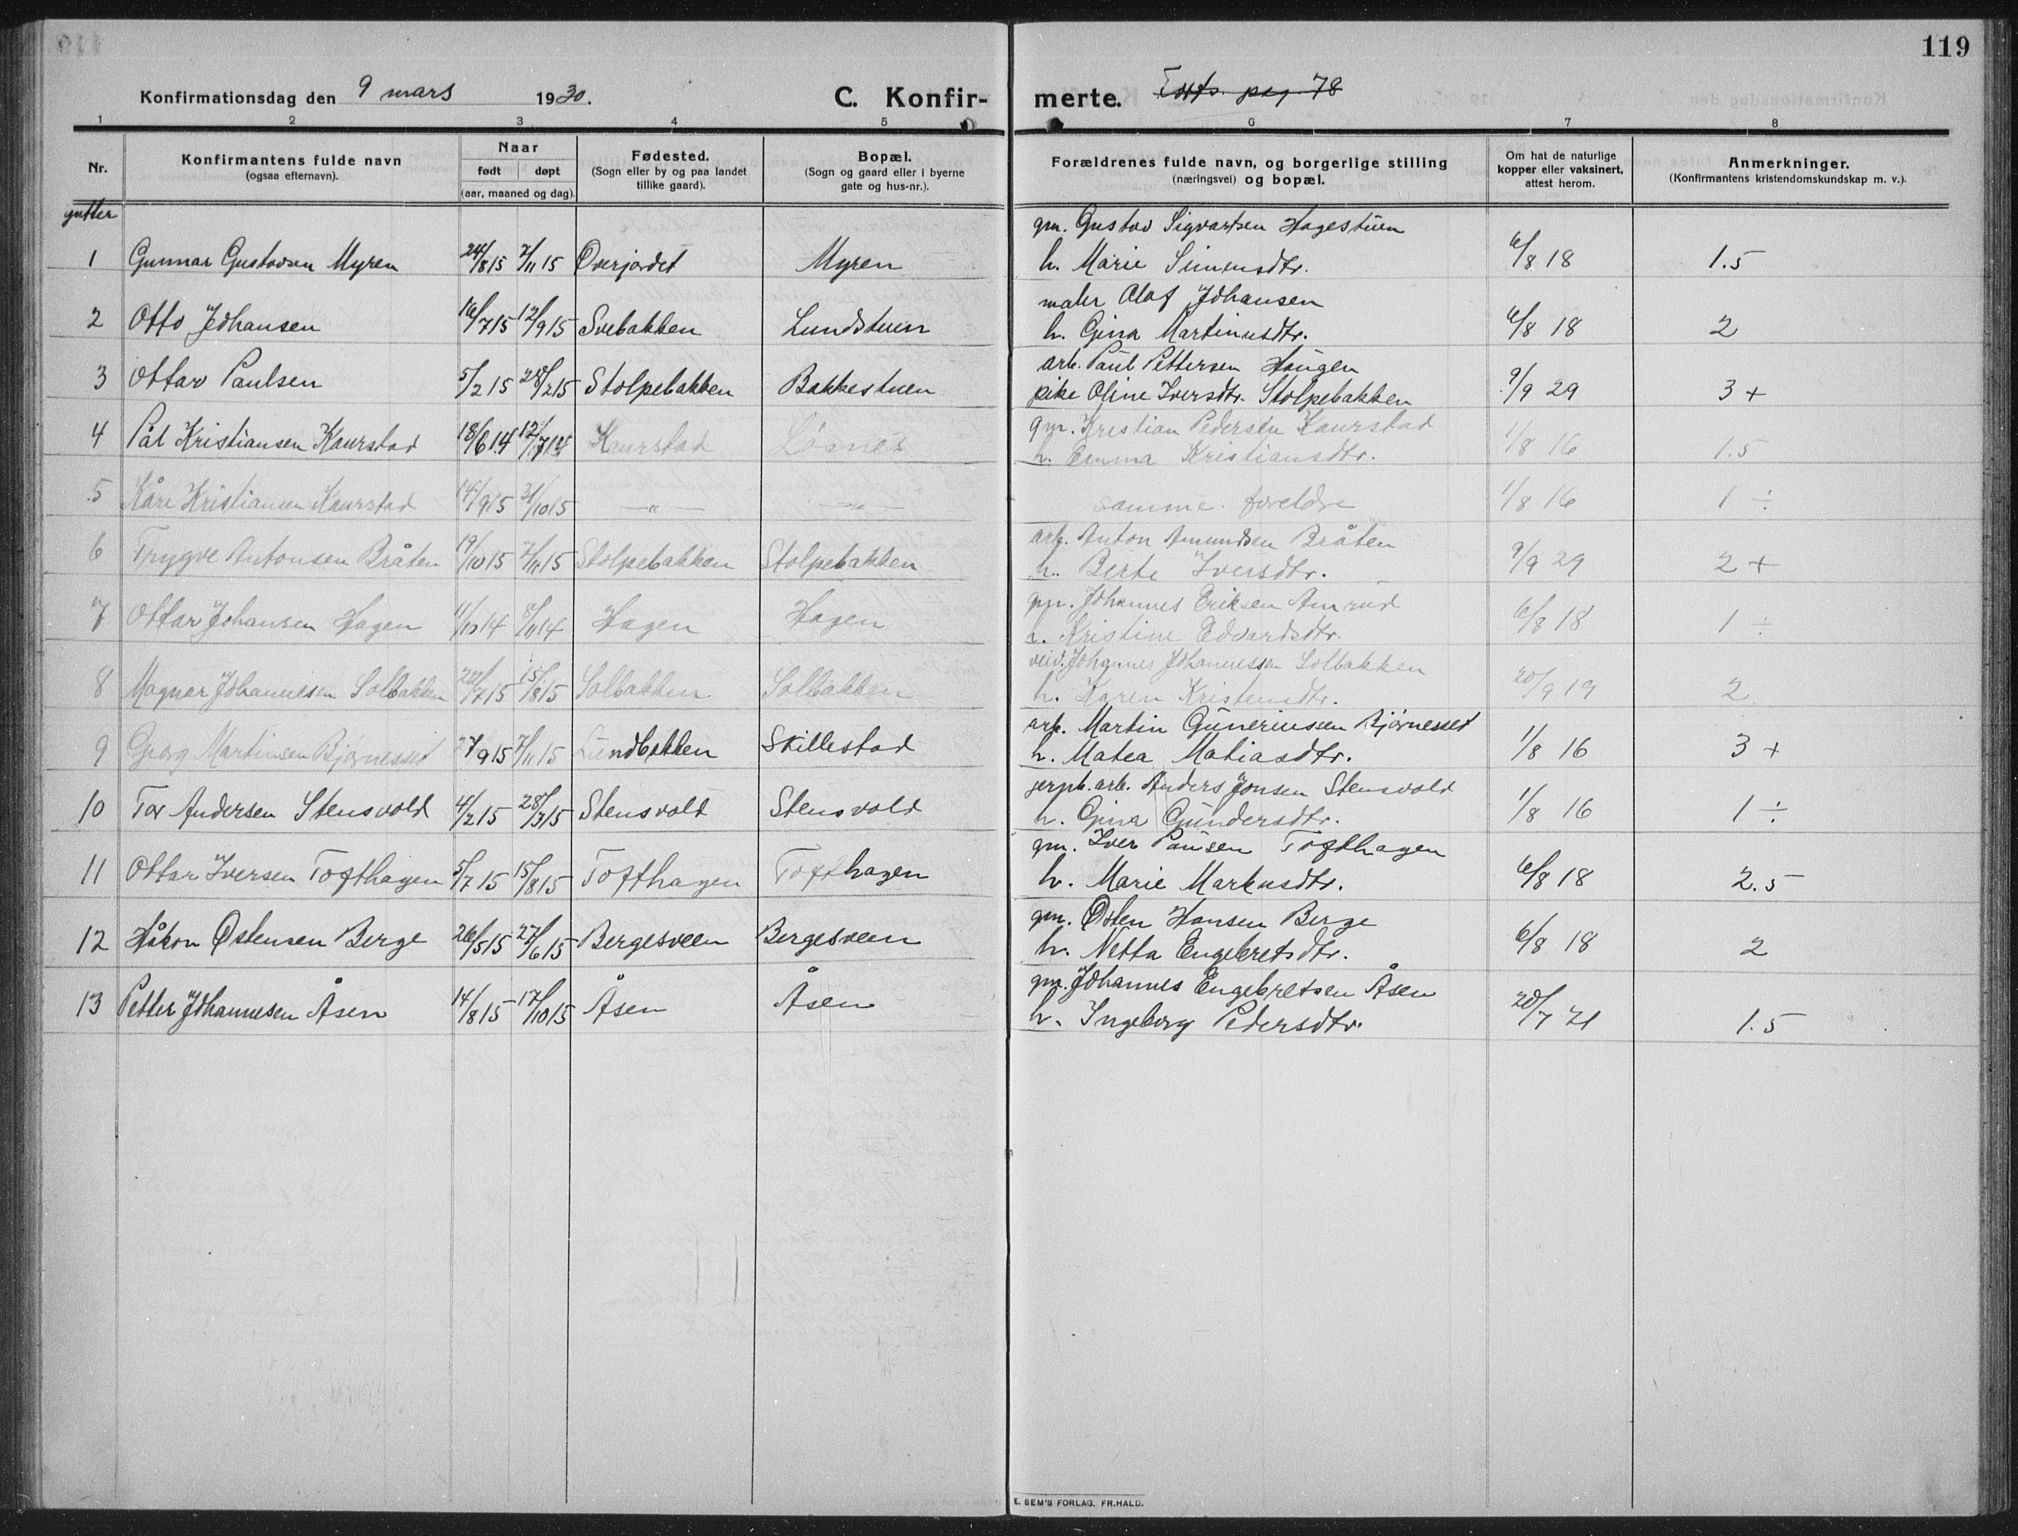 119
Konfirmationsdag den 9 mars 1930.
C. Konfirmerte. Forts. pag. 78
1 2 3 4 5 6 7 8
Nr.
Konfirmantens fulde navn
(ogsaa efternavn).
Naar
født døpt
(aar, maaned og dag).
Fødested.
(Sogn eller by og paa landet
tillike gaard).
Bopæl.
(Sogn og gaard eller i byerne
gate og hus-nr.).
Forældrenes fulde navn, og borgerlige stilling
(næringsvei) og bopæl.
Om hat de naturlige
kopper eller vaksinert,
attest herom.
Anmerkninger.
(Konfirmantens kristendomskundskap m. v.).
gutter
gm. Gustav Sigvartsen Hagestuen
1 Gunnar Gustavsen Myren 24/8 15 7/11 15 Overjordet Myren h. Marie Simensdtr. 6/8 18 1.5
maler Olaf Johansen
2 Otto Johansen 16/7 15 12/9 15 Svebakken Lundstuen h. Gina Martinusdtr. 6/8 18 2
arb. Paul Pettersen Haugen
3 Ottar Paulsen 5/2 15 28/2 15 Stolpebakken Bakkestuen pike Oline Iversdtr. Stolpebakken 9/9 29 3 +
gm. Kristian Pedersen Kaurstad
4 Pål Kristiansen Kaurstad 18/6 14 12/7 14 Kaurstad Løsnes h. Emma Kristiansdtr. 1/8 16 1.5
5 Kåre Kristiansen Kaurstad 14/9 15 31/10 15 — " — — " — samme foreldre 1/8 16 1 ÷
arb. Anton Amundsen Bråten
6 Trygve Antonsen Bråten 19/10 15 7/11 15 Stolpebakken Stolpebakken h. Berte Iversdtr. 9/9 29 2 +
gm. Johannes Eriksen Amrud
7 Ottar Johansen Hagen 11/10 14 8/11 14 Hagen Hagen h. Kristine Edvardsdtr. 6/8 18 1 ÷
veiv. Johannes Johannessen Solbakken
8 Magnar Johannesen Solbakken 22/7 15 15/8 15 Solbakken Solbakken h. Karen Kristensdtr. 20/9 19 2
arb. Martin Gunerinsen Bjørnesset
9 Georg Martinsen Bjørnesset 27/9 15 7/11 15 Lundbakken Skillestad h. Matea Matiasdtr. 1/8 16 3 +
jernb. arb. Anders Jonsen Stensvold
10 Tor Andersen Stensvold 4/2 15 28/3 15 Stensvold Stensvold h. Gina Gundersdtr. 1/8 16 1 ÷
gm. Iver Paulsen Tofthagen
11 Ottar Iversen Tofthagen 5/7 15 15/8 15 Tofthagen Tofthagen h. Marie Markusdtr. 6/8 18 2.5
gm. Østen Hansen Berge
12 Håkon Østensen Berge 26/5 15 27/6 15 Bergesveen Bergesveen h. Netta Engebretsdtr. 6/8 18 2
gm. Johannes Engebretsen Åsen
13 Petter Johannesen Åsen 14/8 15 17/10 15 Åsen Åsen h. Ingeborg Pedersdtr. 20/7 21 1.5
E. SEM'S FORLAG, FR.HALD.